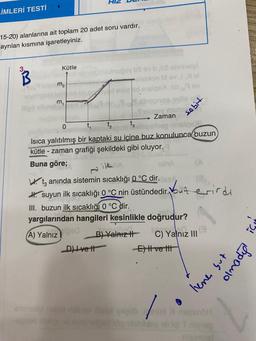 İMLERİ TESTİ
15-20) alanlarına ait toplam 20 adet soru vardır.
ayrılan kısmına işaretleyiniz.
3.
B
Kütle
m₂
m₁
0 t₁ t₂ t₃
Zaman
sabit
Isıca yalıtılmış bir kaptaki su içine buz konulunca buzun
kütle - zaman grafiği şekildeki gibi oluyor.
Buna göre;
ilk
I. t₃ anında sistemin sıcaklığı 0 °C dir.
II. suyun ilk sıcaklığı 0 °C nin üstündedir.
erirdi
III. buzun ilk sıcaklığı 0 °C dir.
yargılarından hangileri kesinlikle doğrudur?
A) Yalnız I B) Yalnız II C) Yalnız III
D) I ve II E) II ve III
olmadığı için